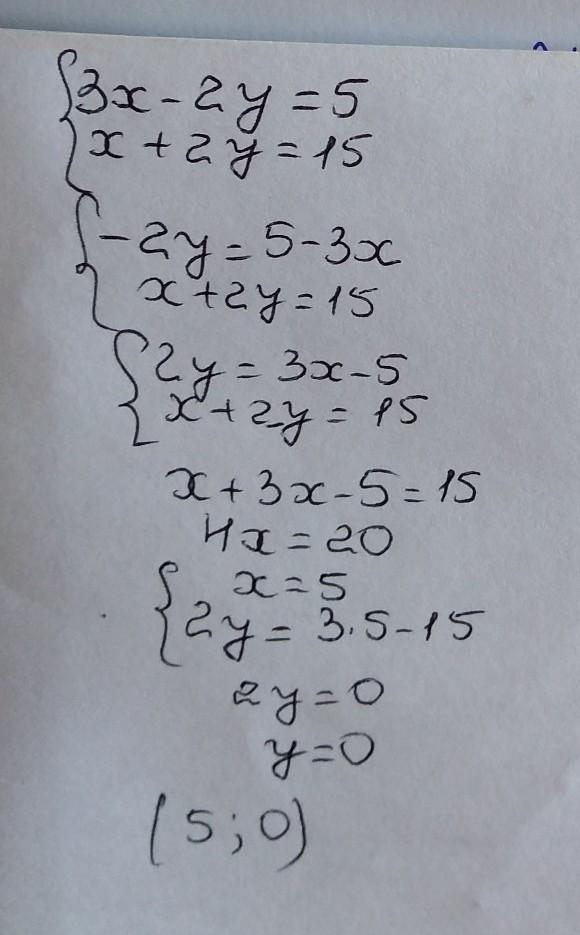 {3x - 2y = 5
x + 2y = 15
{-2y = 5 - 3x
x + 2y = 15
{2y = 3x - 5
x + 2y = 15
x + 3x - 5 = 15
4x = 20
{x = 5
2y = 3·5 - 15
2y = 0
y = 0
(5; 0)